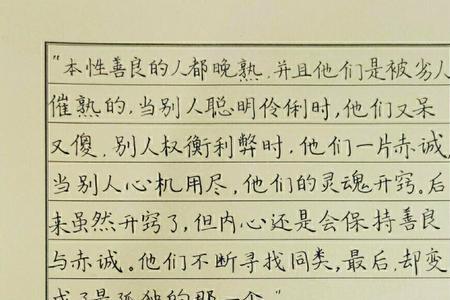 "本性善良的人都晚熟，并且他们是被劣人
催熟的，当别人聪明伶俐时，他们又呆
又傻，别人权衡利弊时，他们一片赤诚，
当别人心机用尽，他们的灵魂开窍。后
来虽然开窍了，但内心还是会保持善良
与赤诚。他们不断寻找同类，最后，却变
成了最孤独的那一个。"